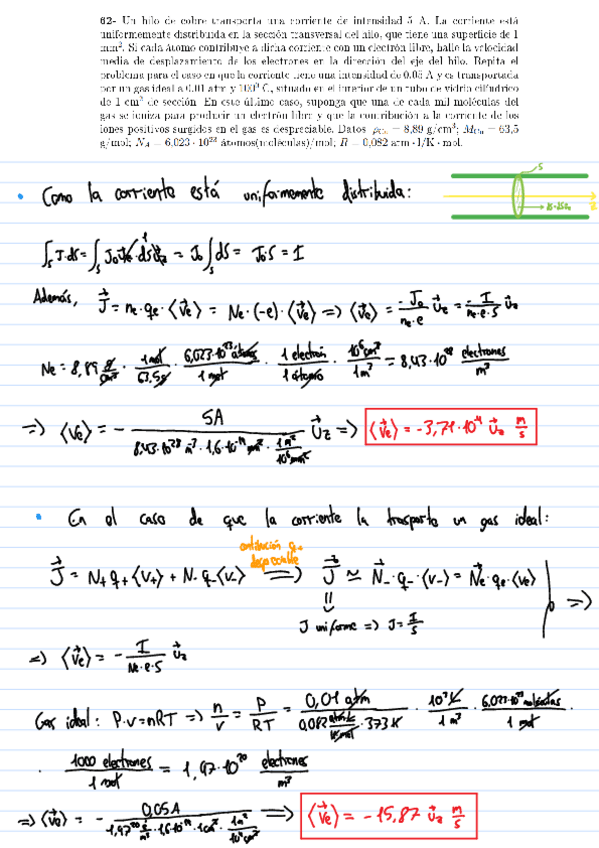 62- Un hilo de cobre transporta una corriente de intensidad 5 A. La corriente está
uniformemente distribuida en la sección transversal del hilo, que tiene una superficie de 1
mm². Si cada átomo contribuye a dicha corriente con un electrón libre, halle la velocidad
media de desplazamiento de los electrones en la dirección del eje del hilo. Repita el
problema para el caso en que la corriente tiene una intensidad de 0.05 A y es transportada
por un gas ideal a 0.01 atm y 100º C, situado en el interior de un tubo de vidrio cilíndrico
de 1 cm² de sección. En este último caso, suponga que una de cada mil moléculas del
gas se ioniza para producir un electrón libre y que la contribución a la corriente de los
iones positivos surgidos en el gas es despreciable. Datos: ρCu = 8,89 g/cm³; MCu = 63,5
g/mol; NA = 6,023 · 10²³ átomos(moléculas)/mol; R = 0,082 atm · l/K · mol.
S
• Como la corriente está uniformemente distribuida:
∫s J·dS = ∫s J₀ u⃗z · dS u⃗z = J₀ ∫s dS = J₀·S = I
Además, J⃗ = ne·qe·⟨v⃗e⟩ = Ne·(-e)·⟨v⃗e⟩ => ⟨v⃗e⟩ = -J₀/(ne·e) u⃗z = -I/(ne·e·S) u⃗z
Ne = 8,89 g/cm³ · 1 mol/63,5g · 6,023·10²³ átomos/1 mol · 1 electrón/1 átomo · 10⁶cm³/1m³ = 8,43·10²⁸ electrones/m³
=> ⟨ve⟩ = - 5A/(8,43·10²⁸ m⁻³ · 1,6·10⁻¹⁹ · mm² · 1m²/10⁶mm²) u⃗z => ⟨v⃗e⟩ = -3,71·10⁻⁴ u⃗z m/s
• En el caso de que la corriente la trasporte un gas ideal:
J⃗ = N₊q₊⟨v₊⟩ + N₋q₋⟨v₋⟩ => J⃗ ≃ N₋·q₋·⟨v₋⟩ = Ne·qe·⟨ve⟩ =>
J uniforme => J = I/S
=> ⟨v⃗e⟩ = - I/(Ne·e·S) u⃗z
Gas ideal: P·v=nRT => n/v = P/RT = 0,01 atm/(0,082 · 373 K) · 10³ℓ/1m³ · 6,023·10²³ moléculas/1 mol
· 1000 electrones/1 mol = 1,97·10²⁰ electrones/m³
=> ⟨v⃗e⟩ = - 0,05A/(1,97·10²⁰ · 1,6·10⁻¹⁹ · 1cm² · 1m²/10⁴cm²) => ⟨v⃗e⟩ = -15,87 u⃗z m/s